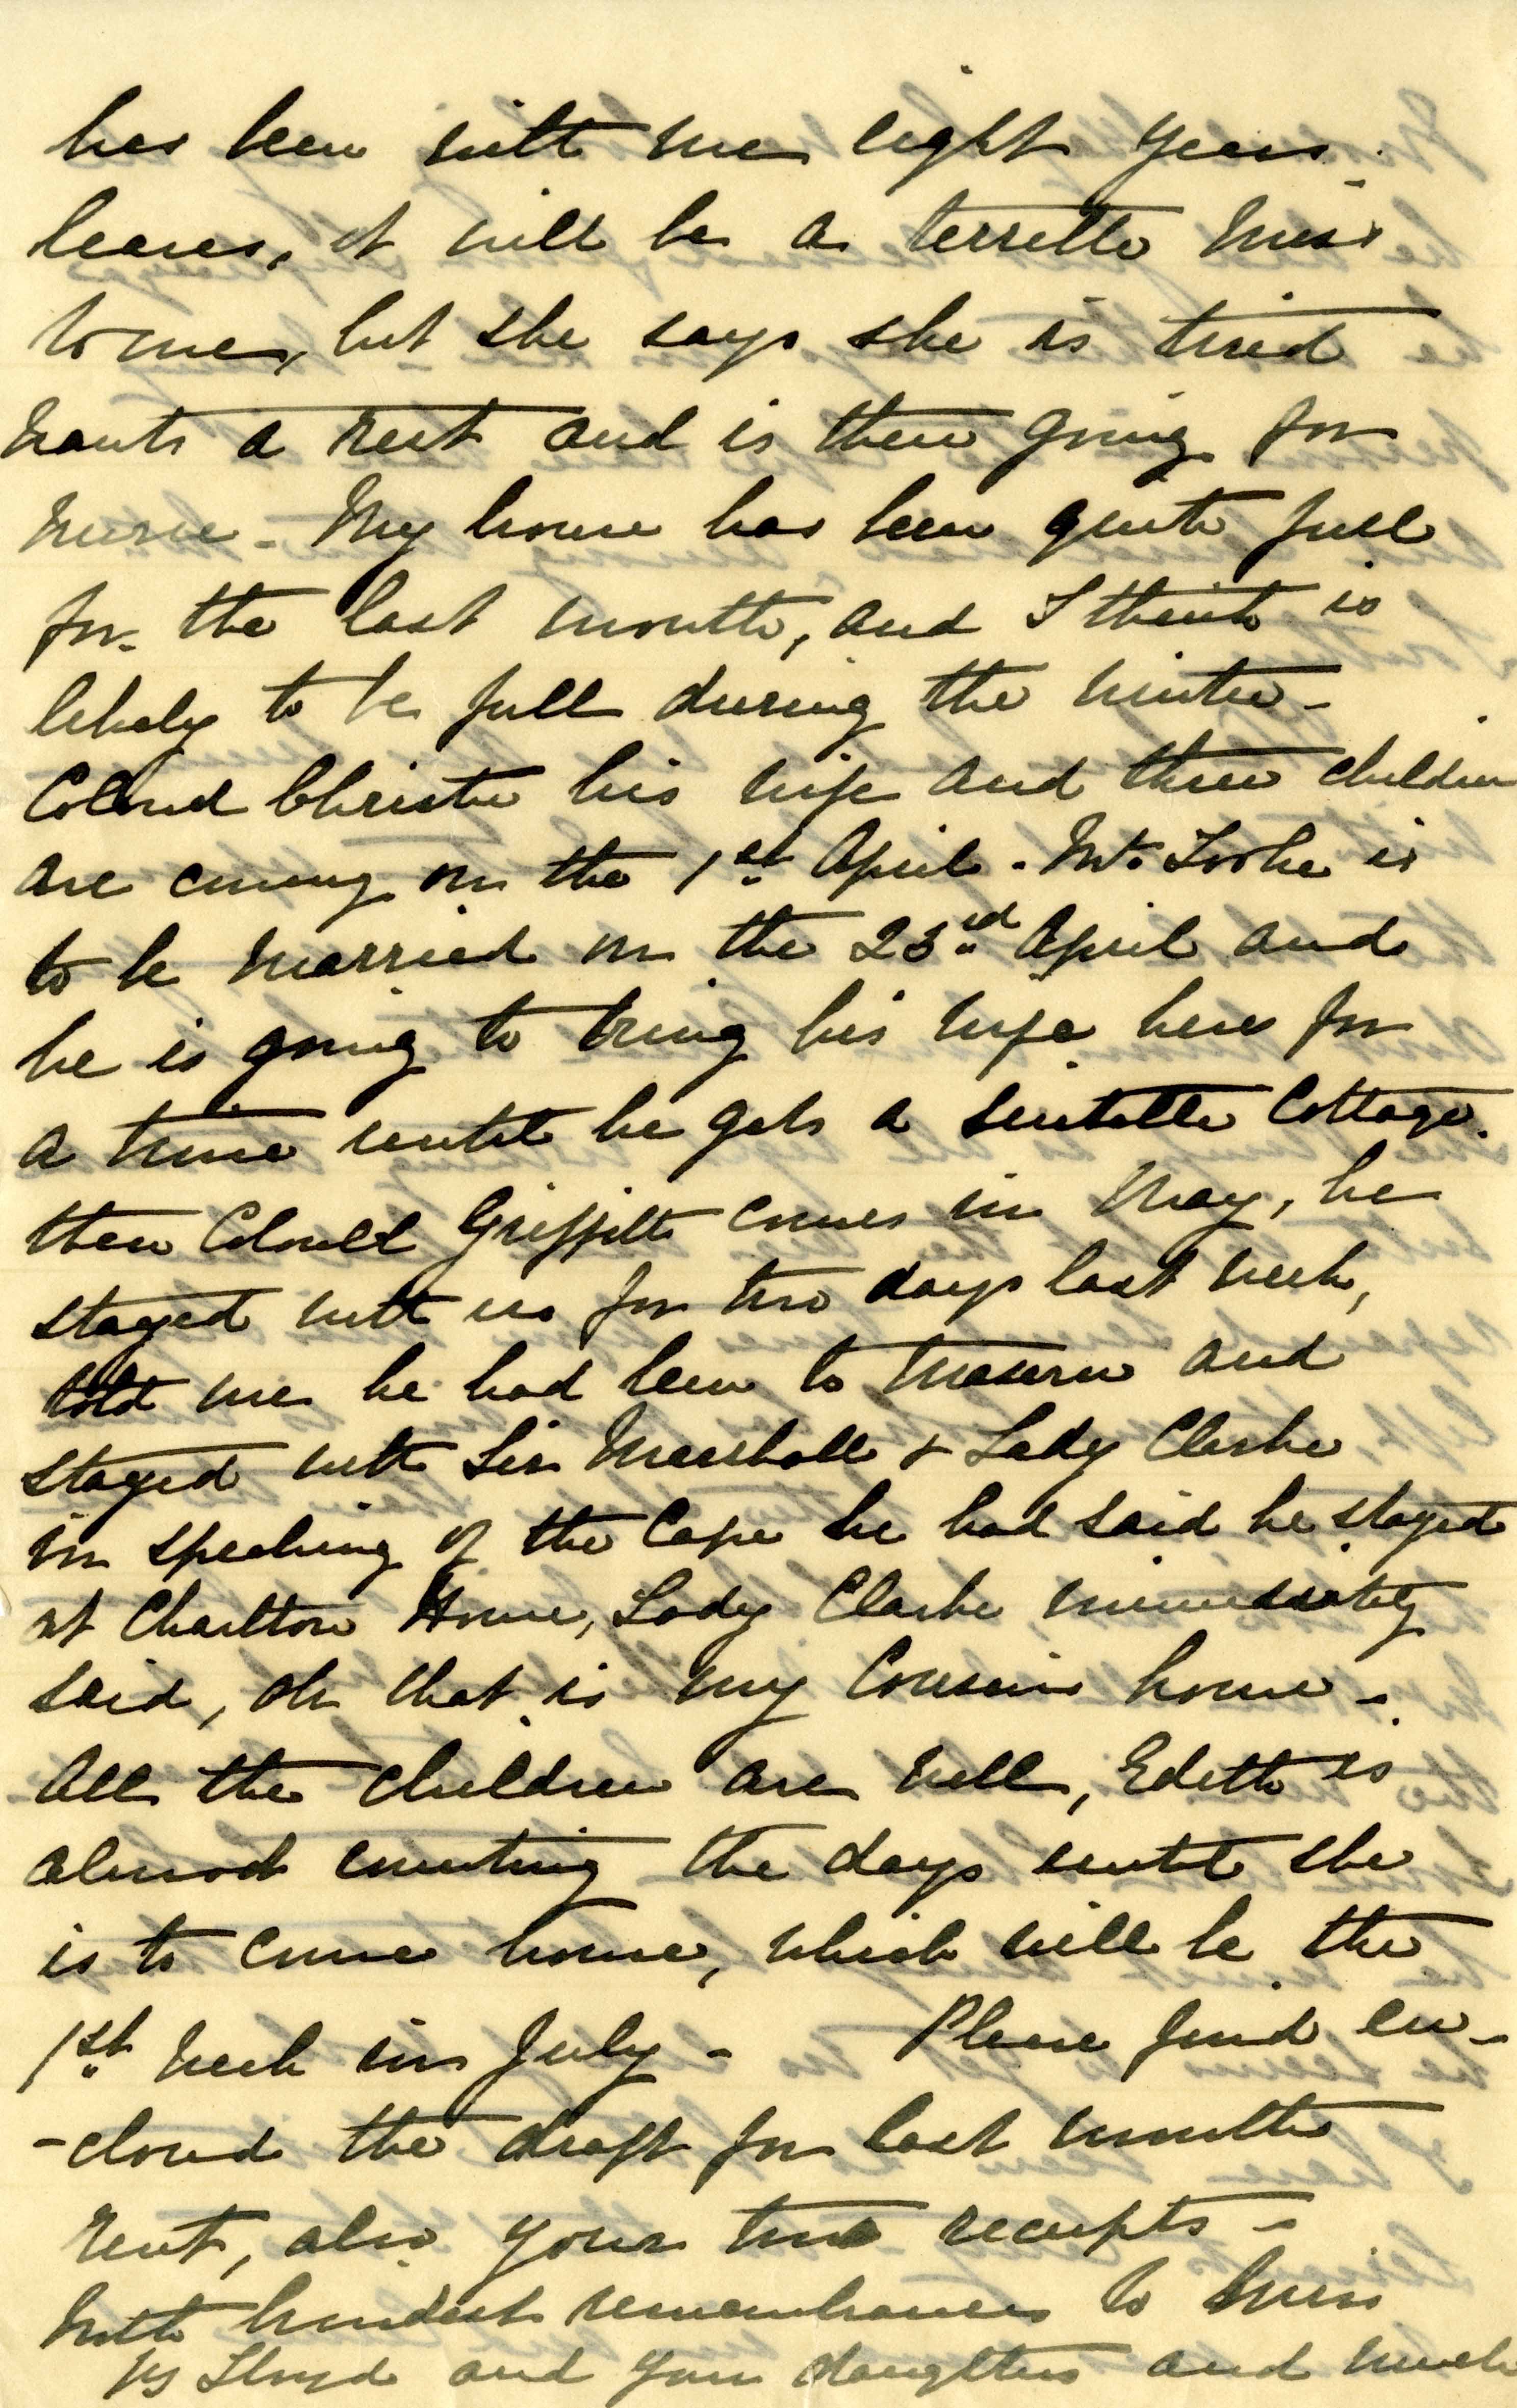 has been with me eight years.
leaves, it will be a terrible miss
to me, but she says she is tired
wants a rest and is then going for
nurse - My house has been quite full
for the last month, and I think is
likely to be full during the winter -
Colonel Christie his wife and three children
are coming on the 1st April - Mr Tooke is
to be married on the 23rd April and
he is going to bring his wife here for
a time until he gets a suitable Cottage.
then Colonel Griffith comes in May, he
stayed with us for two days last week,
told me he had been to and
stayed with Sir Marshall & Lady Clarke
in speaking of the Cape he had said he stayed
at Charlton House, Lady Clarke immediately
said, oh that is my Cousins house -
All the children are well, Edith is
almost counting the days until she
is to come home, which will be the
1st week in July - Please find en-
-closed the draft for last months
rent, also your two receipts -
With kindest remembrances to Miss
Lloyd and your daughters and much